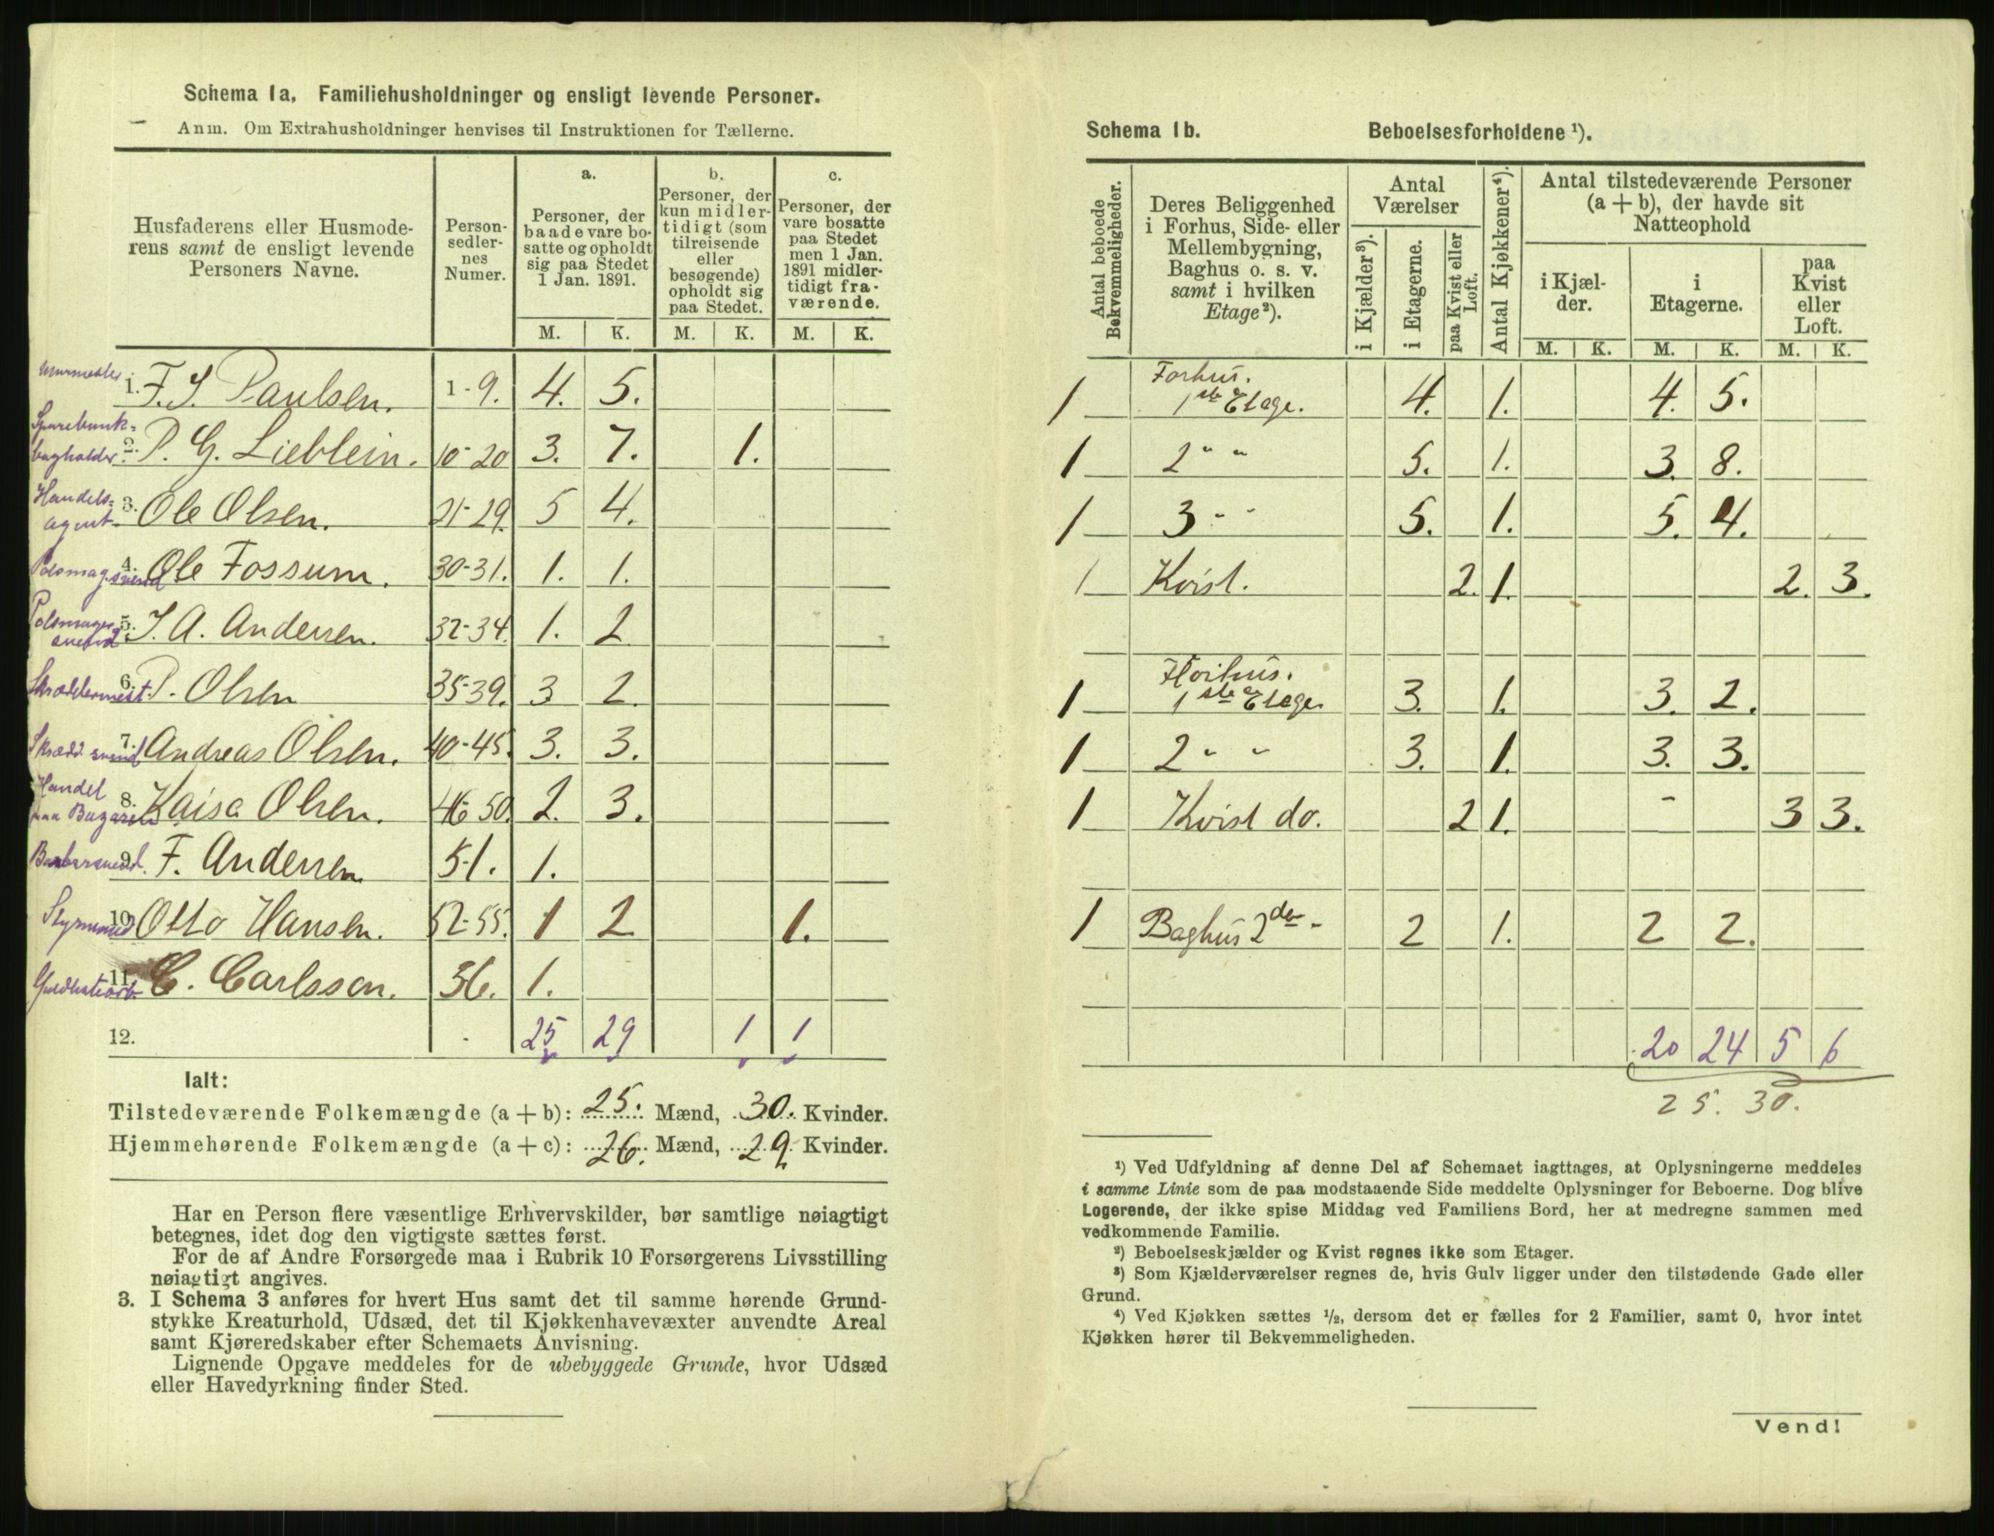 Schema 1a. Familiehusholdninger og ensligt levende Personer.
Anm. Om Extrahusholdninger henvises til Instruktionen for Tællerne.
Husfaderens eller Husmode-
rens samt de ensligt levende
Personers Navne.
Person-
sedler-
nes
Numer.
a.
Personer, der
baade vare bo-
satte og opholdt
sig paa Stedet
1 Jan. 1891.
b.
Personer, der
kun midler-
tidigt (som
tilreisende
eller
besøgende)
opholdt sig
paa Stedet.
c.
Personer, der
vare bosatte
paa Stedet
men 1 Jan.
1891 midler-
tidigt fra-
værende.
M. K. M. K. M. K.
Murmester
1. F. S. Paulsen. 1-9. 4. 5.
Sparebank-
bogholder 2. P. G. Lieblein. 10-20 3. 7. 1.
Handels-
agent 3. Ole Olsen. 21-29. 5 4.
4. Ole Fossum. 30-31. 1. 1.
5. J. A. Andersen. 32-34. 1. 2
Skræddermest. 6. P. Olsen 35-39. 3 2.
Skrædd. svend 7. Andreas Olsen. 40-45. 3. 3.
Handel
paa Bazaren 8. Kaisa Olsen. 46-50. 2. 3.
Barbersvend. 9. F. Andersen 51. 1.
Styrmand 10. Otto Hansen. 52-55. 1 2 1.
11. C. Carlsson. 36. 1.
12. 25 29 1 1
Ialt:
Tilstedeværende Folkemængde (a + b): 25. Mænd, 30. Kvinder.
Hjemmehørende Folkemængde (a + c): 26. Mænd, 29. Kvinder.
Har en Person flere væsentlige Erhvervskilder, bør samtlige nøiagtigt
betegnes, idet dog den vigtigste sættes først.
For de af Andre Forsørgede maa i Rubrik 10 Forsørgerens Livsstilling
nøiagtigt angives.
3. I Schema 3 anføres for hvert Hus samt det til samme hørende Grund-
stykke Kreaturhold, Udsæd, det til Kjøkkenhavevæxter anvendte Areal
samt Kjøreredskaber efter Schemaets Anvisning.
Lignende Opgave meddeles for de ubebyggede Grunde, hvor Udsæd
eller Havedyrkning finder Sted.
Schema 1b. Beboelsesforholdene ¹).
Antal beboede
Bekvemmeligheder.
Deres Beliggenhed
i Forhus, Side- eller
Mellembygning,
Baghus o. s. v.
samt i hvilken
Etage ²).
Antal
Værelser
i Kjælder ³).
i Etagerne.
paa Kvist eller
Loft.
Antal Kjøkkener ⁴).
Antal tilstedeværende Personer
(a + b), der havde sit
Natteophold
i Kjæl-
der.
i
Etagerne.
paa
Kvist
eller
Loft.
M. K. M. K. M. K.
1 Forhus.
1ste Etage. 4. 1. 4. 5.
1 2 " " 5. 1. 3. 8.
1 3 " " 5. 1. 5. 4.
1 Kvist. 2. 1. 2. 3.
Forhus.
1 1ste Etage. 3. 1. 3. 2.
1 2 " " 3. 1. 3. 3.
1 Kvist do. 2 1. - - 3 3.
1 Baghus 2den 2 1. 2 2.
20 24 5 6
25. 30.
¹) Ved Udfyldning af denne Del af Schemaet iagttages, at Oplysningerne meddeles
i samme Linie som de paa modstaaende Side meddelte Oplysninger for Beboerne. Dog blive
Logerende, der ikke spise Middag ved Familiens Bord, her at medregne sammen med
vedkommende Familie.
²) Beboelseskjælder og Kvist regnes ikke som Etager.
³) Som Kjælderværelser regnes de, hvis Gulv ligger under den tilstødende Gade eller
Grund.
⁴) Ved Kjøkken sættes ½, dersom det er fælles for 2 Familier, samt 0, hvor intet
Kjøkken hører til Bekvemmeligheden.
Vend!